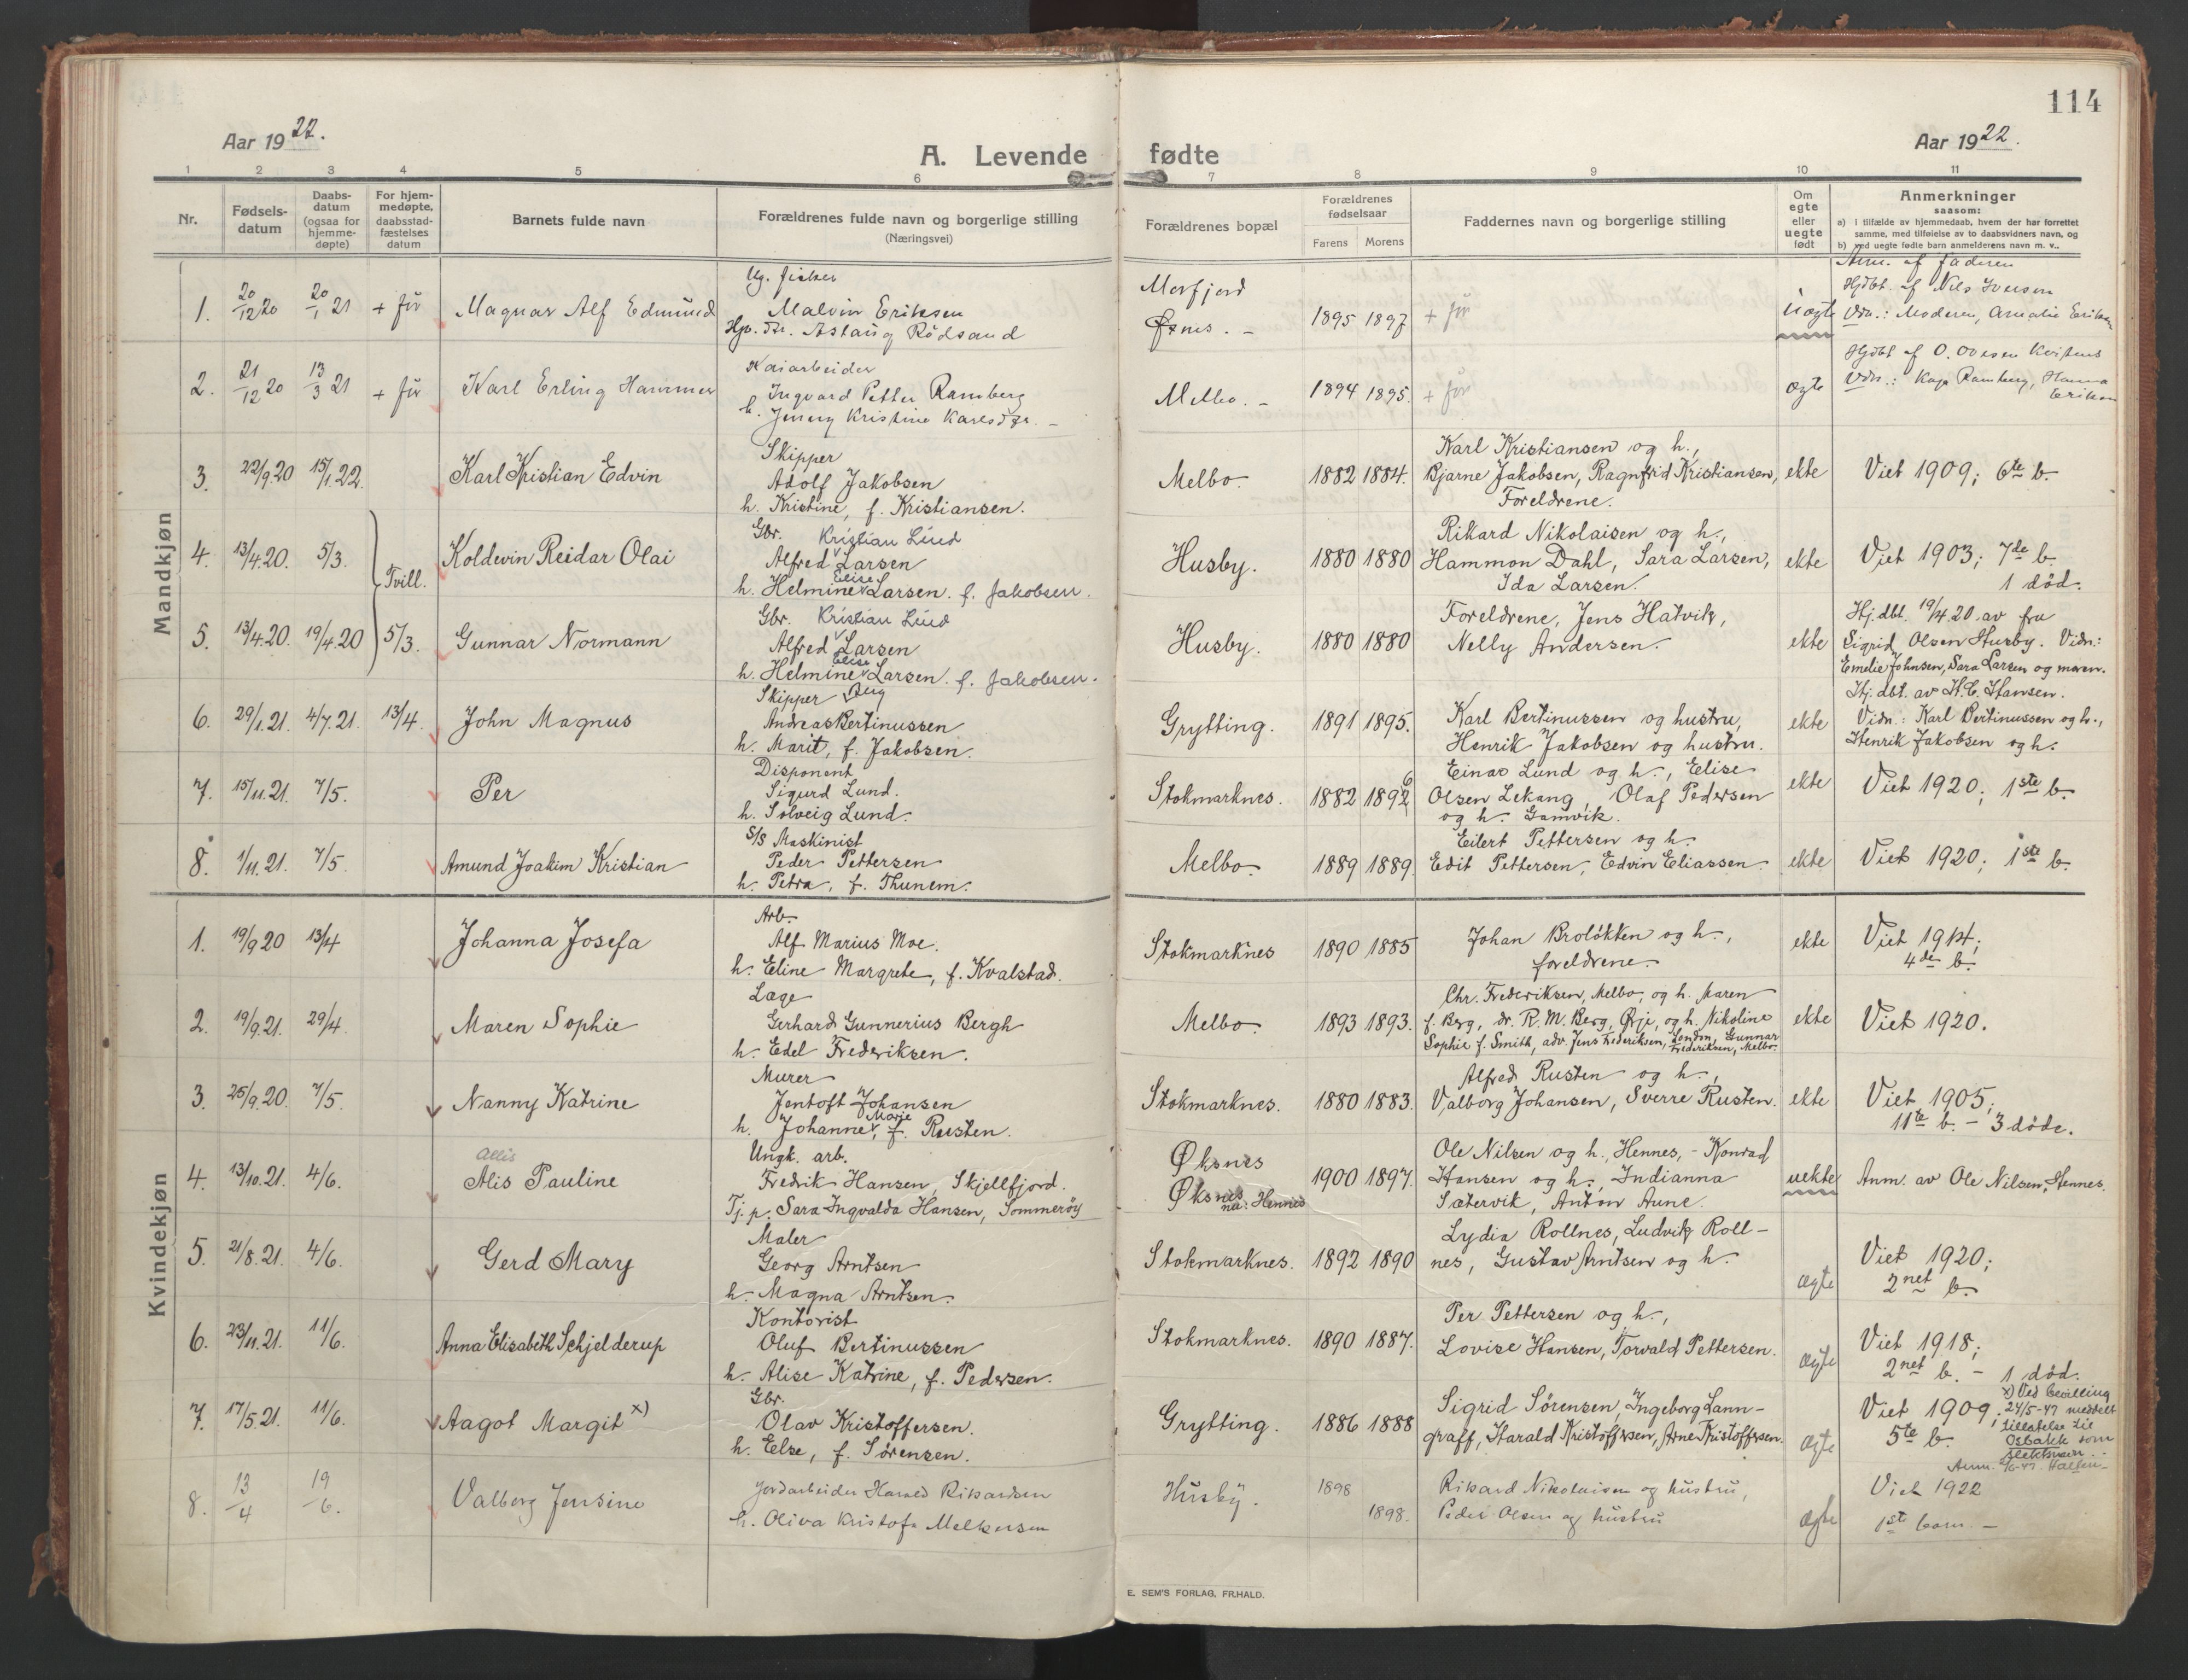 114
Aar 1922.
A. Levende fødte
Aar 1922.
1 2 3 4 5 6 7 8 9 10 11
Nr.
Fødsels-
datum
Daabs-
datum
(ogsaa for
hjemme-
døpte)
For hjem-
medøpte,
daabsstad-
fæstelses
datum
Barnets fulde navn
Forældrenes fulde navn og borgerlige stilling
(Næringsvei)
Forældrenes bopæl
Forældrenes
fødselsaar
Farens Morens
Faddernes navn og borgerlige stilling
Om
egte
eller
uegte
født
Anmerkninger
saasom:
a) I tilfælde av hjemmedaab, hvem der har forrettet
samme, med tilføielse av to daabsvidners navn, og
b) ved uegte fødte barn anmelderens navn m. v..
Mandkjøn
1. 20/12 20 20/1 21 + før Magnar Alf Edmund
Ug. fisker
Malvin Eriksen
Aslaug Rødsand
Morfjord
Øxnes. -
1895 1897 + før
uægte
Anm. af faderen
Hjdbt. af Nils Iversen
Vdn.: Moderen, Amalie Eriksen
2. 21/12 20 13/3 21 + før Karl Erling Hammer
Kaiarbeider
Ingvard Petter Ramberg
h. Jenny Kristine Karlsdtr. -
Melbo. -
1894 1895. + før
ægte
Hjdbt af O. Ovesen
Vdn.: Kaja Ramberg, Hanna
Eriksen
3. 22/9.20 15/1.22. Karl Kristian Edvin
Skipper
Adolf Jakobsen
h. Kristine, f. Kristiansen.
Melbo.
1882 1884.
Karl Kristiansen og h.,
Bjarne Jakobsen, Ragnfrid Kristiansen,
Foreldrene.
ekte
Viet 1909; 6te b.
4. 13/4.20. 5/3. Tvill. Koldevin Reidar Olai
Gbr. Kristian Lind
Alfred Larsen
Elise
h. Helmine Larsen. f. Jakobsen.
Husby.
1880 1880
Rikard Nikolaisen og h.,
Hammon Dahl, Sara Larsen,
Ida Larsen.
ekte
Viet 1903; 7de b.
1 død.
5. 13/4.20. 19/4.20 5/3. Gunnar Normann
Gbr. Kristian Lind
Alfred Larsen
Elise
h. Helmine Larsen. f. Jakobsen.
Husby.
1880 1880
Foreldrene, Jens Hatvik,
Nelly Andersen.
ekte
Hj.dbt. 19/4.20 av fru
Sigrid Olsen Husby. Vidn.:
Emelie Johnsen, Sara Larsen og moren.
6. 29/1.21. 4/7.21. 13/4. John Magnus
Skipper
Andreas Bertinussen
h. Marit, f. Jakobsen.
Grytting.
1891 1895.
Karl Bertinussen og hustru,
Henrik Jakobsen og hustru.
ekte
Hj.dbt. av H.C. Hansen.
Vidn.: Karl Bertinussen og h.,
Henrik Jakobsen og h.
7. 15/11.21. 7/5. Per
Disponent
Sigurd Lund.
h. Solveig Lund.
Stokmarknes.
6
1882 1892
Einar Lund og h., Elise
Olsen Lekang, Olaf Pedersen
og h. Gamvik.
ekte
Viet 1920; 1ste b.
8. 1/11.21. 7/5. Amund Joakim Kristian
S/S Maskinist
Peder Pettersen
h. Petra, f. Thunem.
Melbo.
1889 1889.
Eilert Pettersen og h.
Edit Pettersen, Edvin Eliassen.
ekte
Viet 1920; 1ste b.
Kvindekjøn
1. 19/9.20 13/4 Johanna Josefa
Arb.
Alf Marius Moe.
h. Eline Margrete, f. Kvalstad.
Stokmarknes
1890 1885
Johan Broløkken og h.,
foreldrene.
ekte
Viet 1914;
4de b.
2. 19/9.21. 29/4. Maren Sophie
Læge
Gerhard Gunnerius Bergh
h. Edel Frederiksen.
Melbo.
1893 1893.
Chr. Frederiksen, Melbo, og h. Maren
f. Berg, dr. R. M. Berg, Ørje, og h. Nikoline
Sophie f. Smith, adv. Jens Frederiksen, London, Gunnar
Frederiksen, Melbo.
ekte
Viet 1920.
3. 25/9.20. 7/5. Nanny Katrine
Murer
Jentoft Johansen
Marie
h. Johanne, f. Rusten.
Stokmarknes.
1880 1883.
Alfred Rusten og h.,
Valborg Johansen, Sverre Rusten.
ekte
Viet 1905;
11te b. - 3 døde.
4. 13/10.21. 4/6.
Allis
Alis Pauline
Ungk. arb.
Fredrik Hansen, Skjellfjord.
Tj. p. Sara Ingvalda Hansen, Sommerøy
Øksnes
Øksnes
nu: Hennes
1900 1897.
Ole Nilsen og h., Hennes, - Konrad
Hansen og h., Indianna
Sætervik, Anton Aune.
uekte
Anm. av Ole Nilsen, Hennes.
5. 21/8.21. 4/6. Gerd Mary
Maler
Georg Arntsen
h. Magna Arntsen.
Stokmarknes.
1892 1890
Lydia Rollnes, Ludvik Roll-
nes, Gustav Arntsen og h.
ægte
Viet 1920;
2net b.
6. 23/11.21. 11/6. Anna Elisabeth Schjelderup
Kontorist
Oluf Bertinussen
h. Alise Katrine, f. Pedersen.
Stokmarknes.
1890 1887.
Per Pettersen og h.,
Lovise Hansen, Torvald Pettersen.
ægte
Viet 1918;
2net b. - 1 død.
7. 17/5.21. 11/6. Aagot Margit x)
Gbr.
Olav Kristoffersen.
h. Else, f. Sørensen.
Grytting.
1886 1888
Sigrid Sørensen, Ingeborg Lann-
graff, Harald Kristoffersen, Arne Kristoffersen.
ægte
Viet 1909;
5te b.
x) Ved bevilling
24/5-47 meddelt
tillatelse til
Osbakk som
slektsnavn.
8. 13/4 19/6. Valborg Jensine
Jordarbeider Harald Rikardsen
h. Oliva Kristofa Melkersen
Husby.
1898
1898.
Rikard Nikolaisen og hustru,
Peder Olsen og hustru
ægte
Viet 1922
1st barn. -
E. SEM'S FORLAG, FR.HALD.